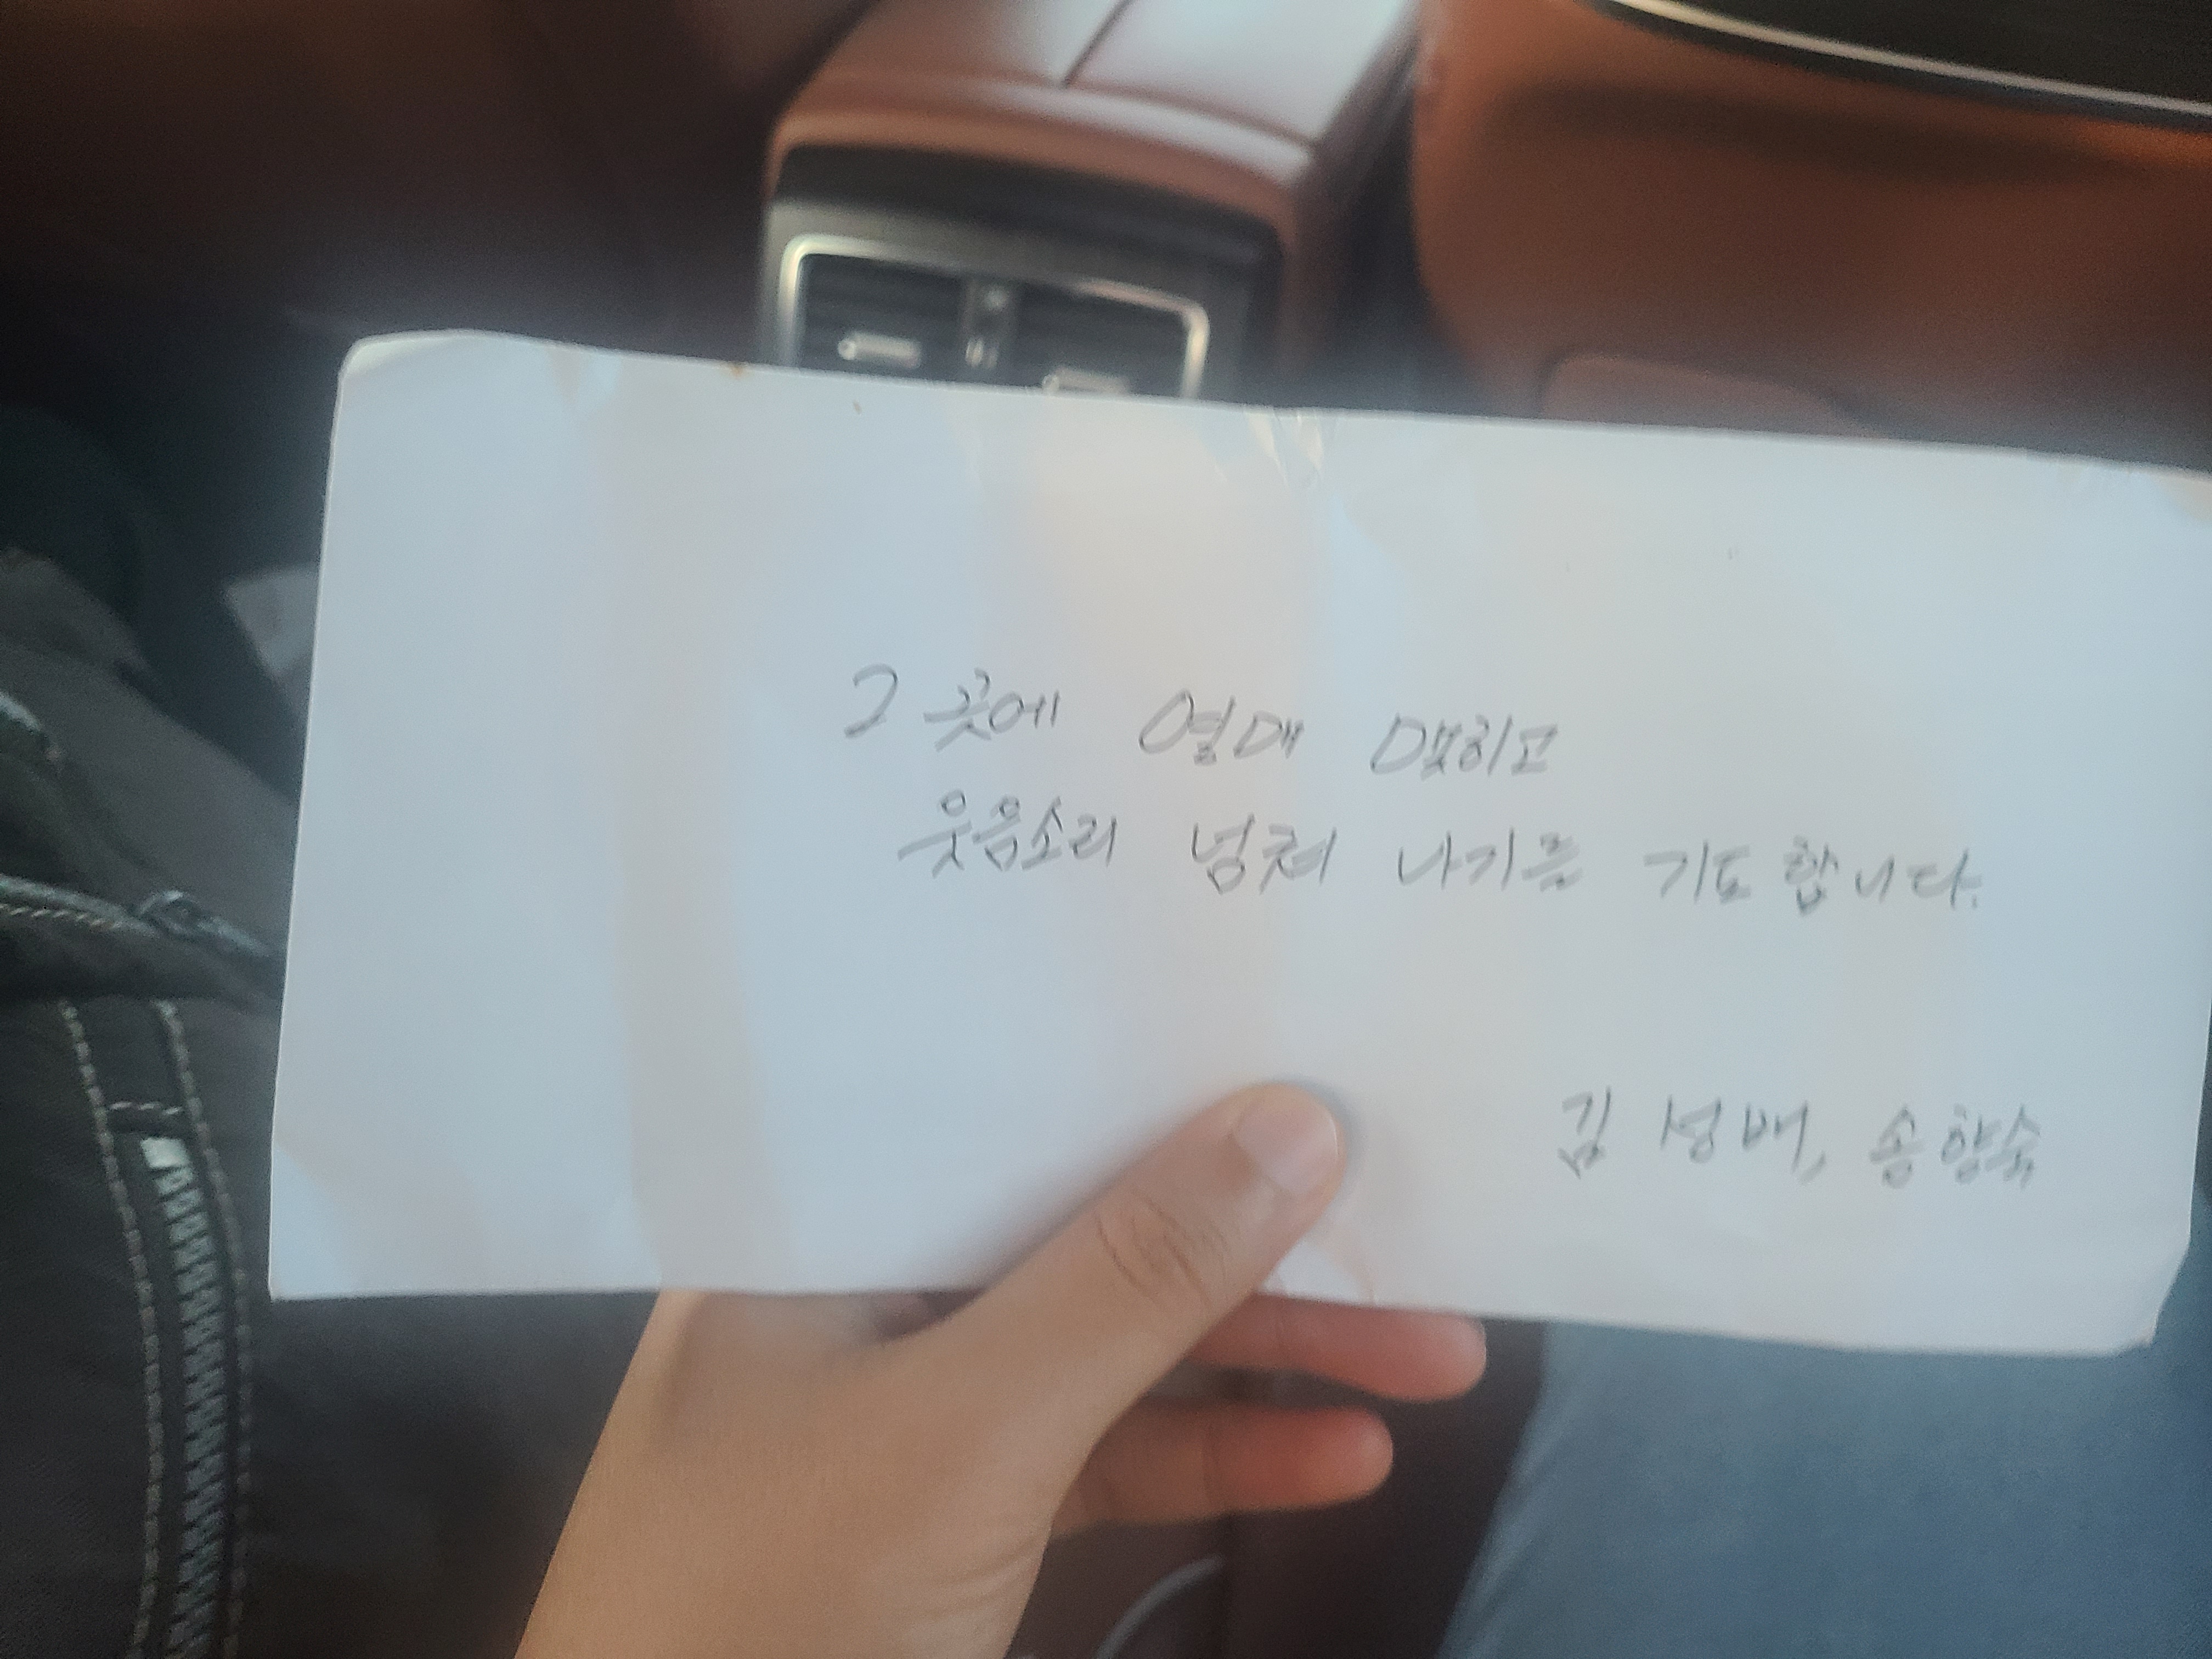 그 곳에 열매 맺히고
웃음소리 넘쳐 나기를 기도합니다.
김 성배, 송향숙